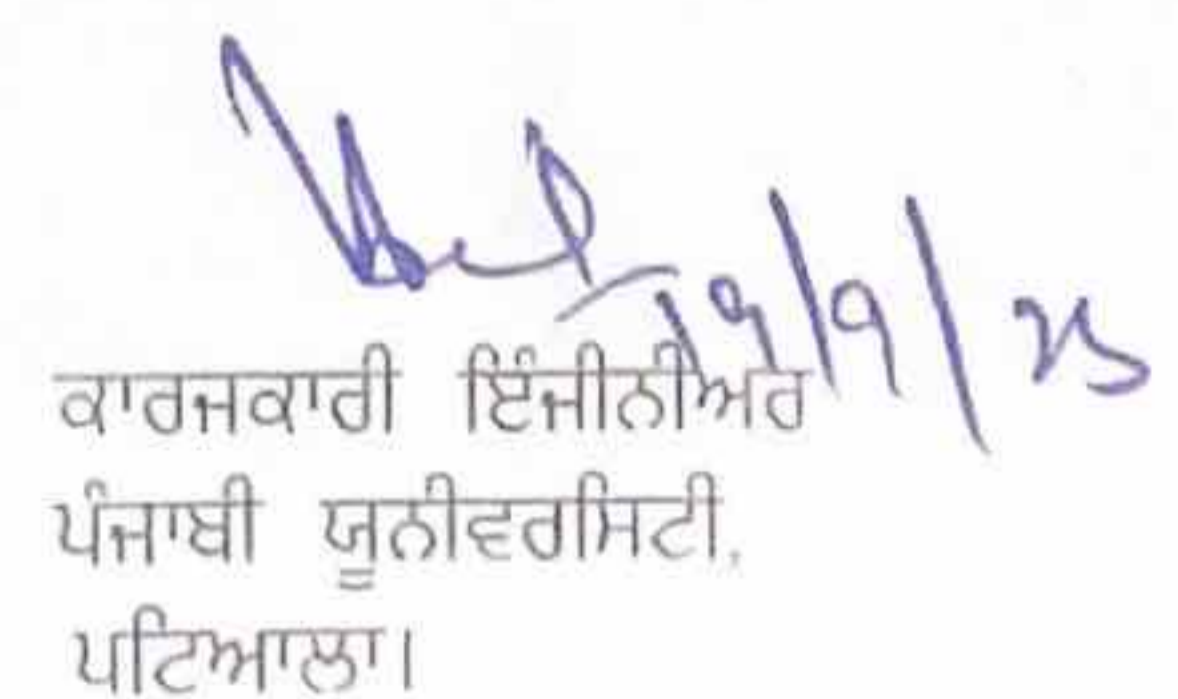 19/9/25
ਕਾਰਜਕਾਰੀ ਇੰਜੀਨੀਅਰ
ਪੰਜਾਬੀ ਯੂਨੀਵਰਸਿਟੀ,
ਪਟਿਆਲਾ।